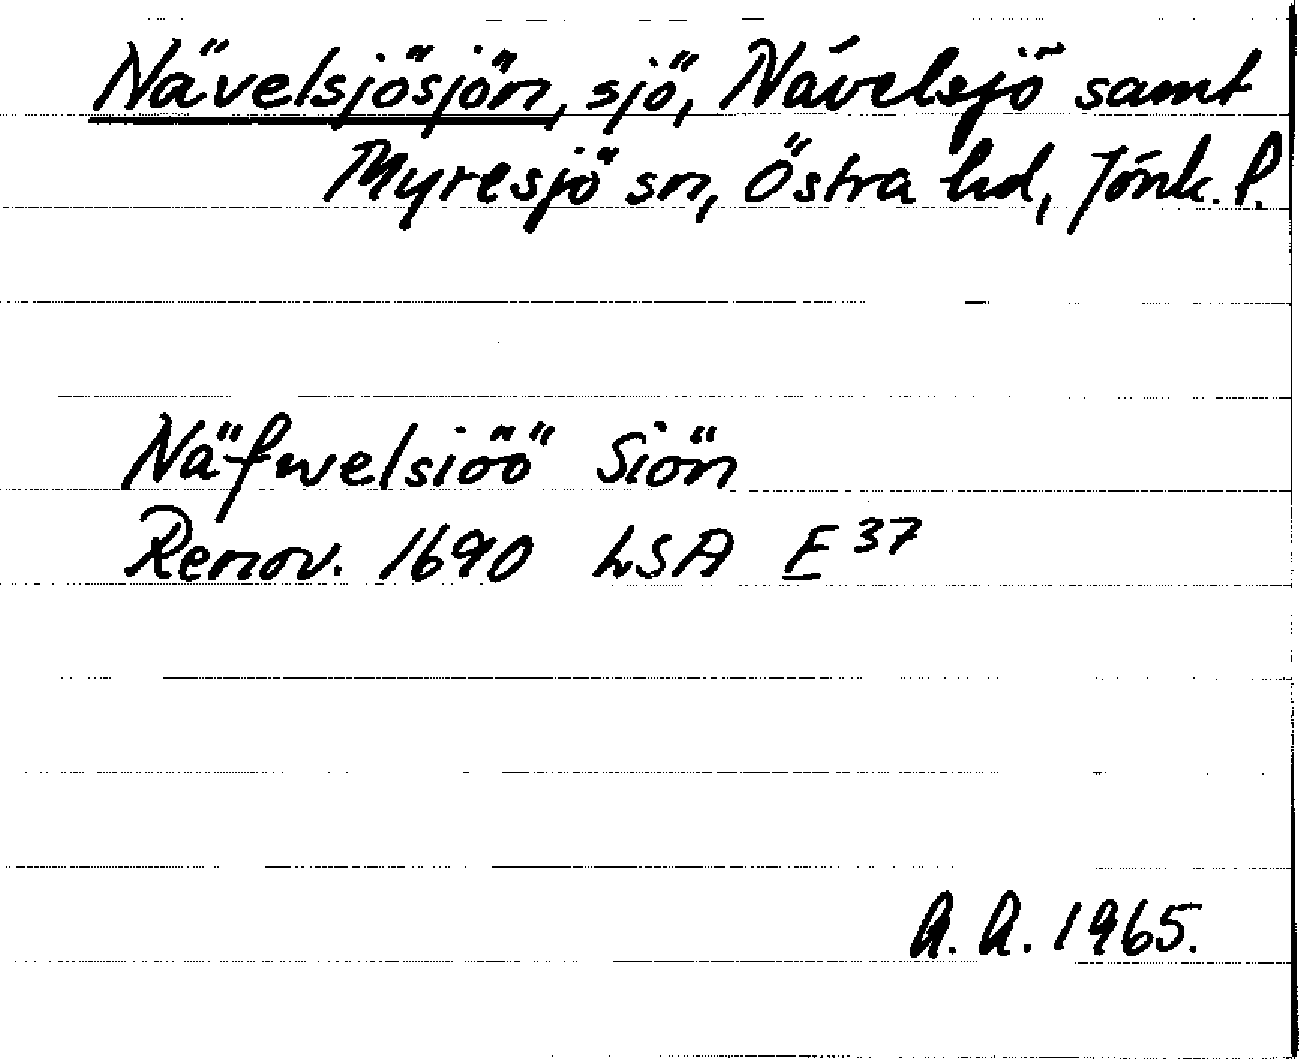 Nävelsjösjön, sjö, Nävelsjö samt
Myresjö sn, Östra hd, Jönk. l.
Näfwelsiöö Siön
Renov. 1690 LSA E 37
A. A. 1965.